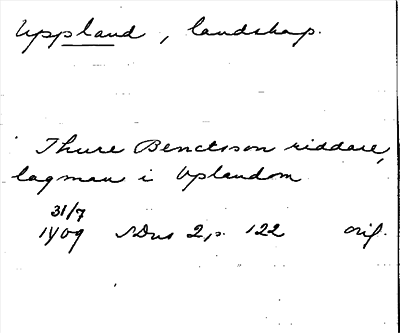 Uppland, landskap.
Thure Benctsson riddare,
lagman i Uplandom
31/7
1409 SDns 2, p. 122 orig.